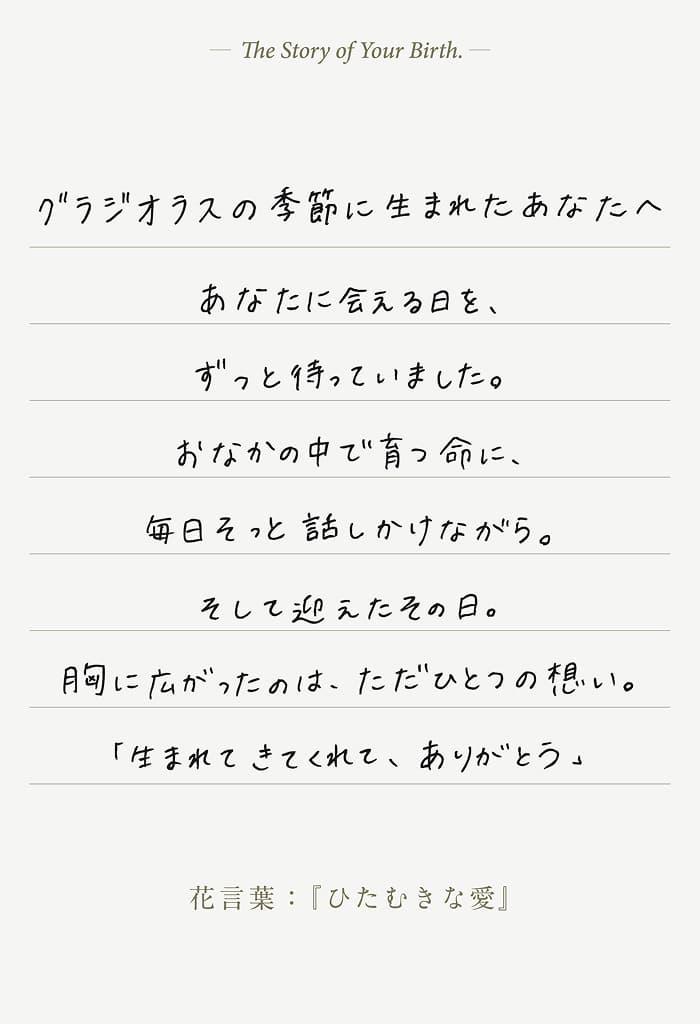 The Story of Your Birth.
グラジオラスの季節に生まれたあなたへ
あなたに会える日を、
ずっと待っていました。
おなかの中で育つ命に、
毎日そっと話しかけながら。
そして迎えたその日。
胸に広がったのは、ただひとつの想い。
「生まれてきてくれて、ありがとう」
花言葉：『ひたむきな愛』